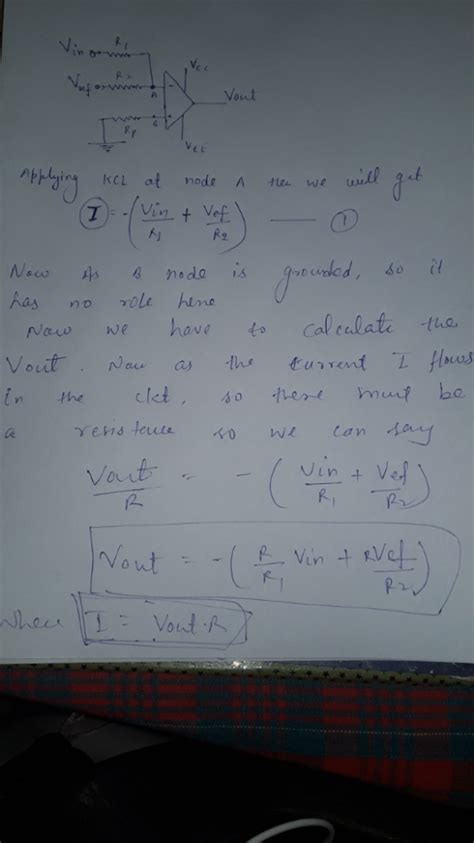 Vin R1
Vref R2 A - Vcc
Vout
B +
Rp VEE
Applying KCL at node A then we will get
I = -(Vin/R1 + Vef/R2) —— 1
Now As B node is grounded, so it
has no role here
Now we have to calculate the
Vout. Now as the current I flows
in the ckt, so there must be
a resistance so we can say
Vout/R = -(Vin/R1 + Vef/R2)
Vout = -(R/R1 Vin + RVef/R2)
where I = Vout·R